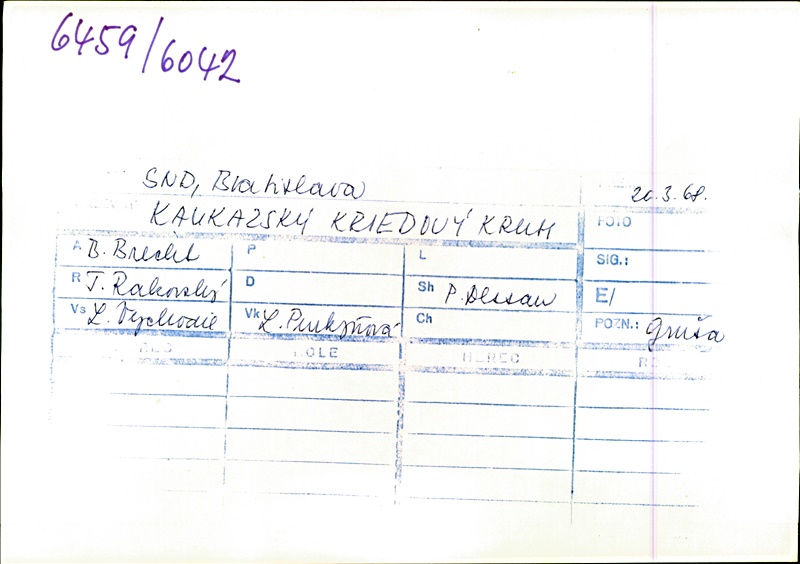 6459/6042
SND, Bratislava
KAUKAZSKÝ KRIEDOVÝ KRUH
FOTO
A B. Brecht P L SIG.:
R J. Rakovský D Sh P. Dessau E/
Vs L. Vychodil Vk L. Purkyňová Ch POZN.: Gruša
ROLE HEREC